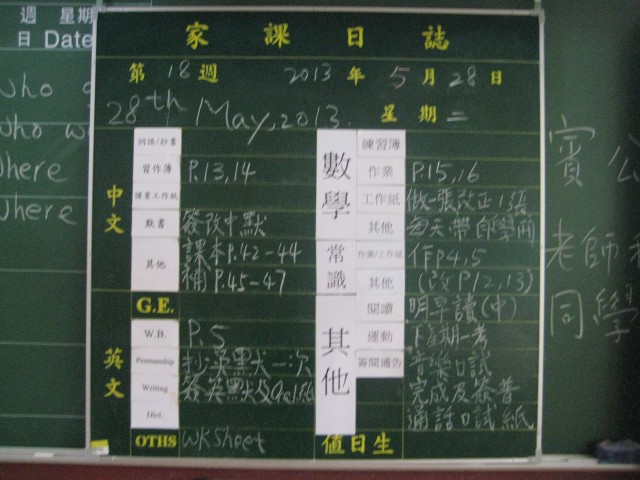 週 星期
日 Date
家課日誌
第 18 週 2013 年 5 月 28 日
28th May, 2013. 星期二
中文
詞語/抄書
習作簿 P.13,14
課業工作紙
默書 簽改中默
其他 課本P.42-44
補P.45-47
G.E.
英文
W.B. P.5
Penmanship 抄英默一次
Writing 簽英默及
Dict.
OTHS WKSheet
數學
練習簿
作業 P.15,16
工作紙 做一張改正1張
其他 每天帶自學用
常識
作業/工作紙 作P4,5
其他 (改P12,13)
其他
閱讀 明早讀(中)
運動 下星期一考
簽閱通告 音樂口試
完成及簽普
通話口試紙
值日生
who
who w
where
where
賓 公
老師
同學